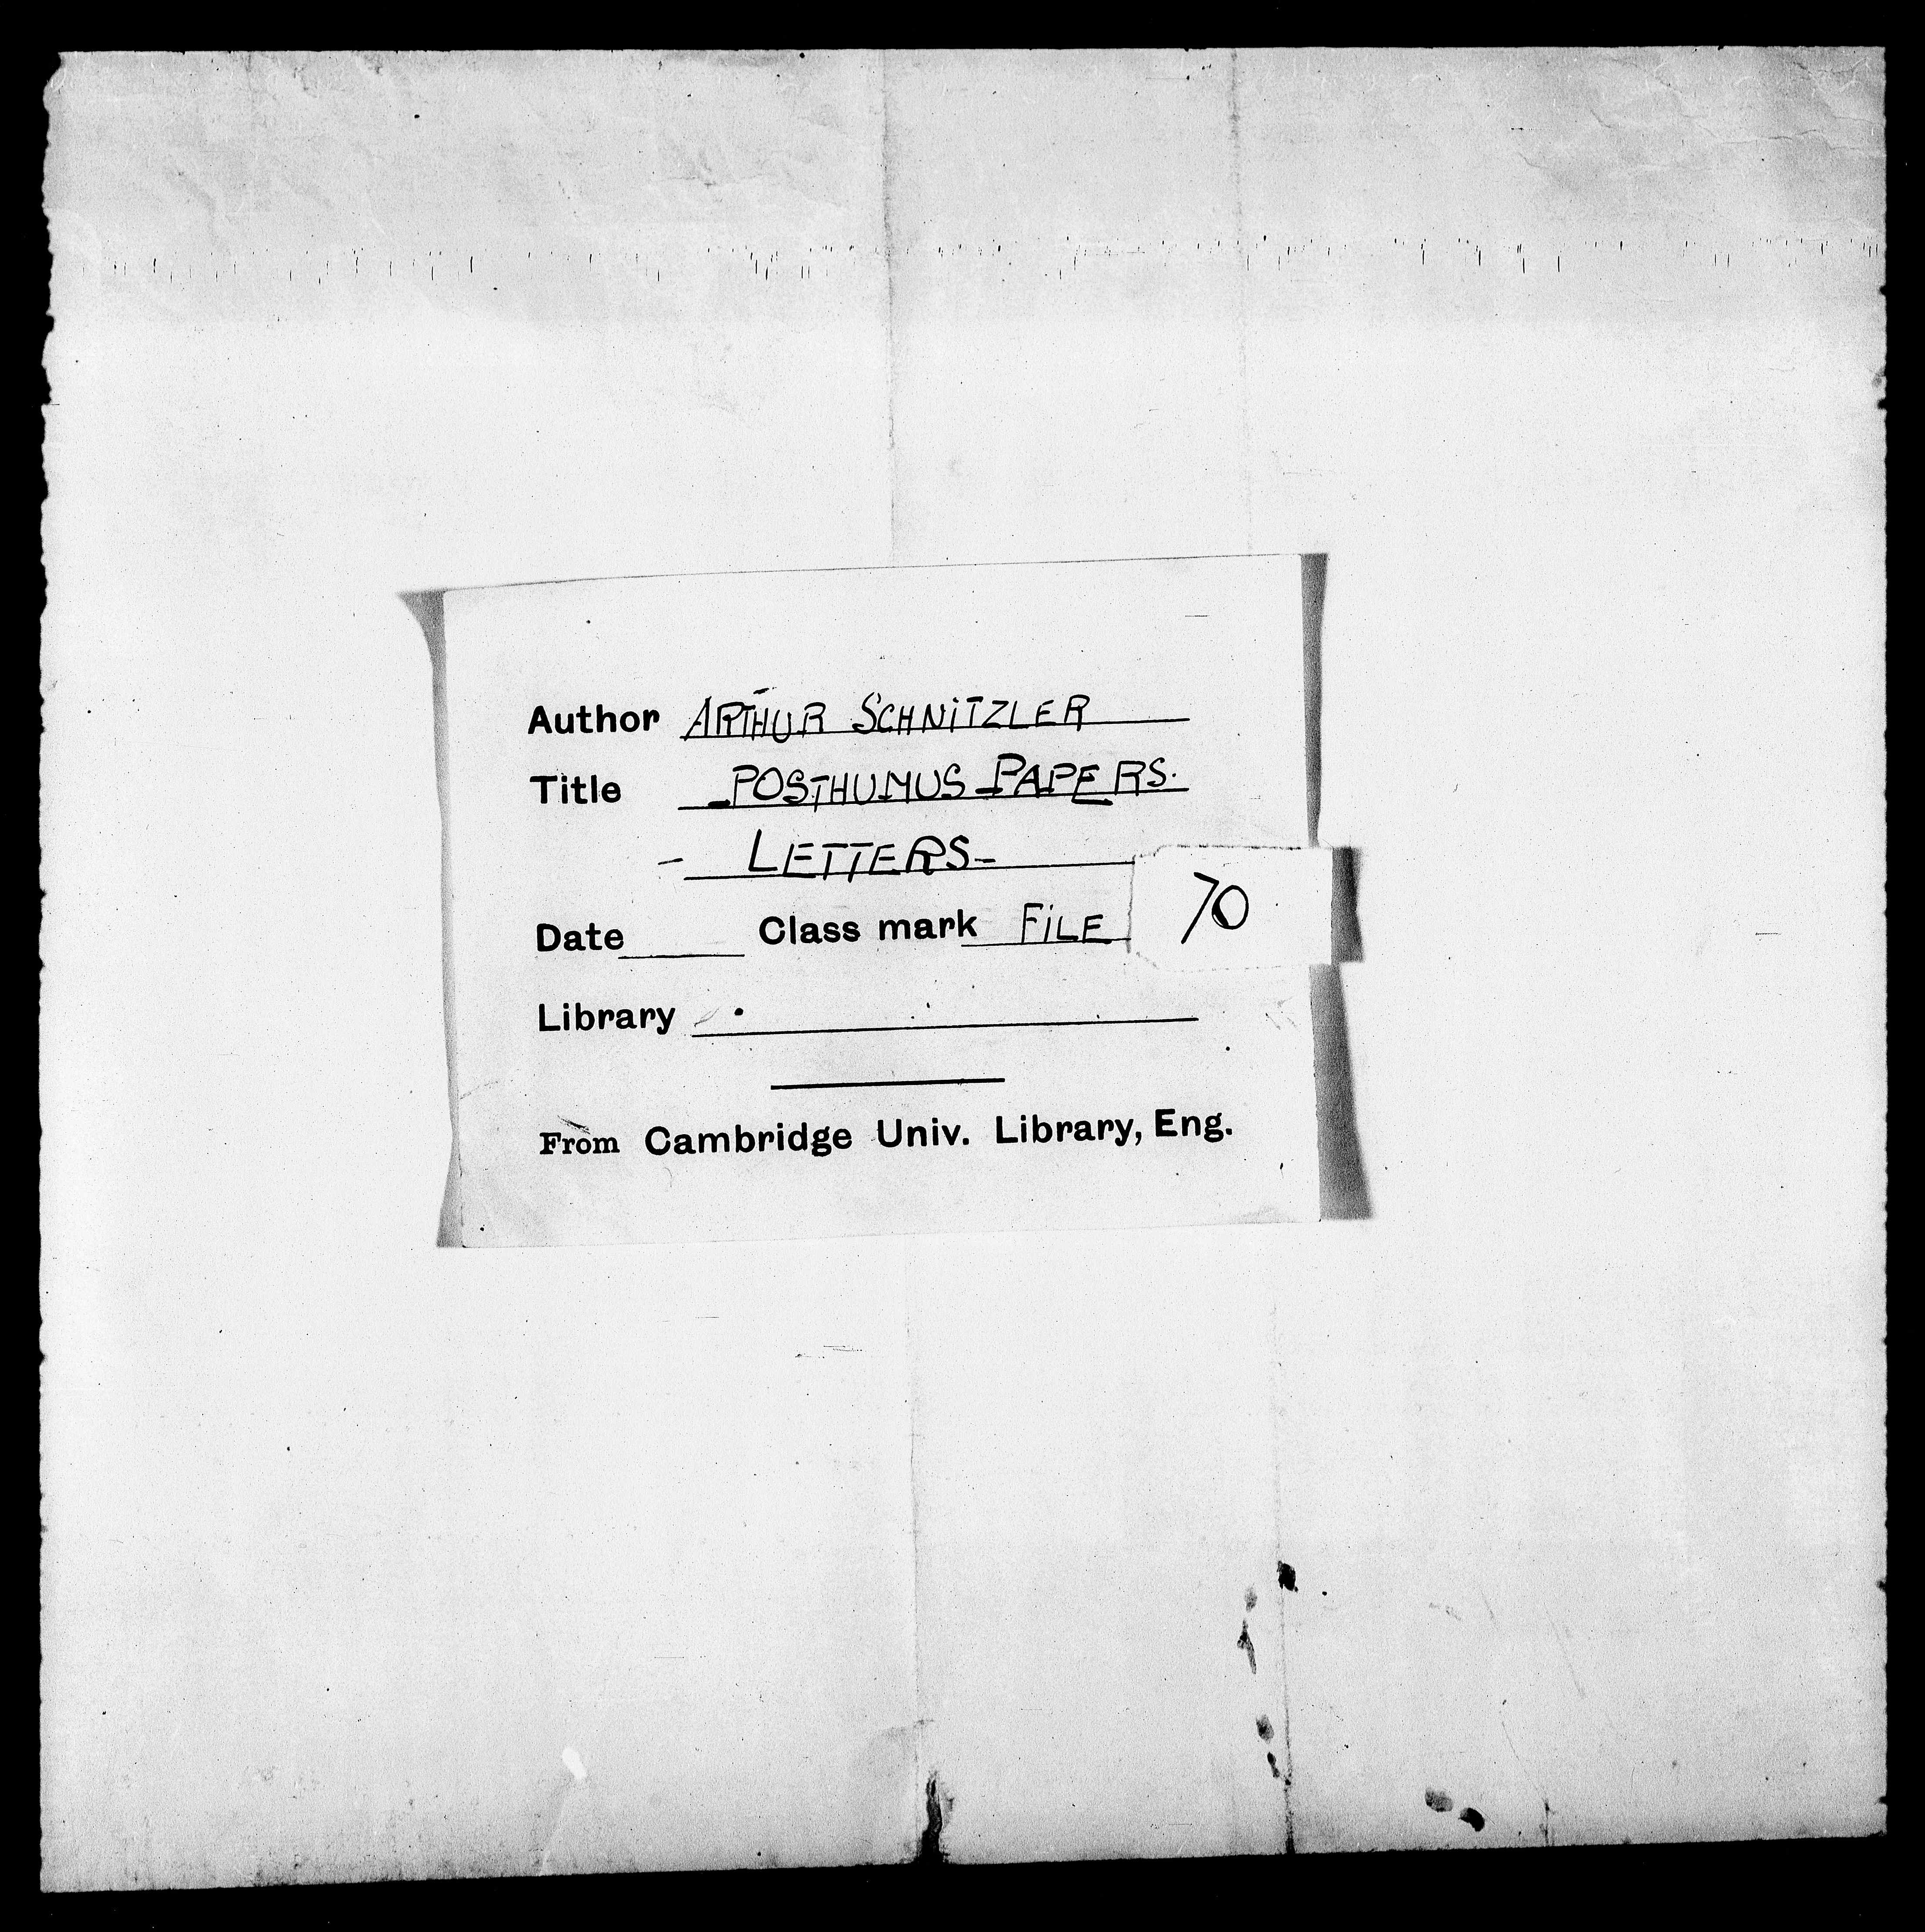 Author ARTHUR SCHNiTZLER
Title POSTHUMUS PAPERS.
- LETTERS-
Date Class mark FiLE 70
Library
From Cambridge Univ. Library, Eng.